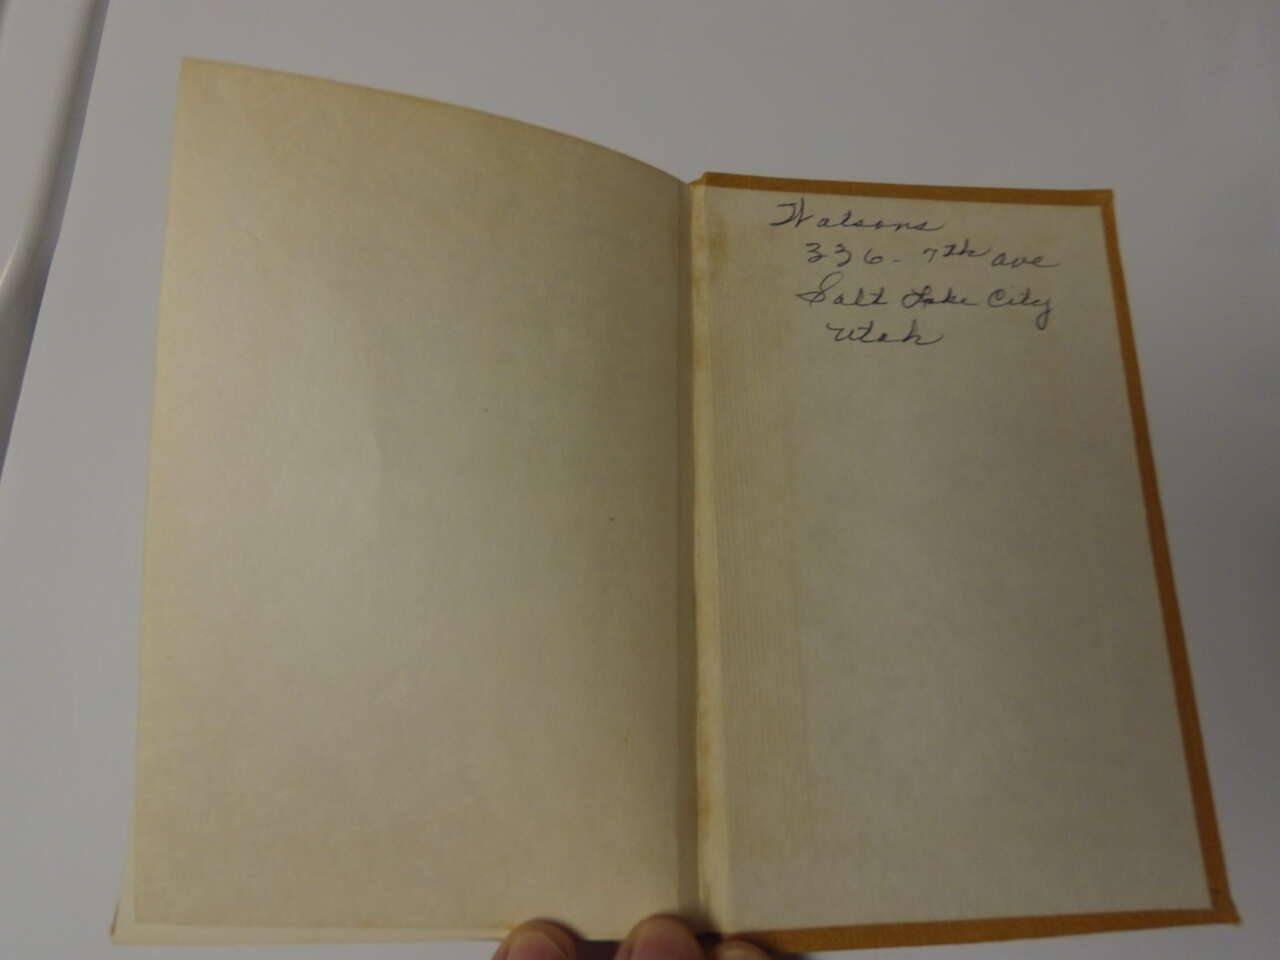 Watsons
336 - 7th ave
Salt Lake City
Utah